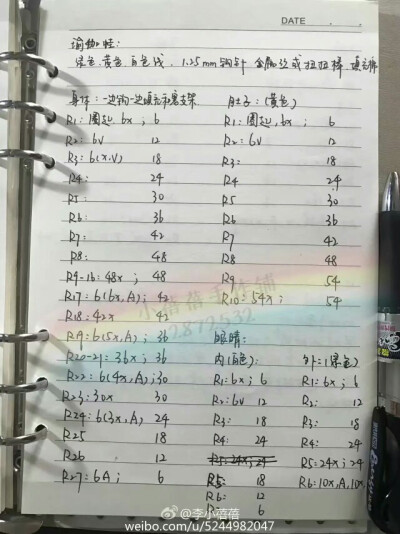 DATE
瑜伽蛙:
绿色.黄色.白色线. 1.25mm钩针 金属丝或扭扭棒.填充棉
身体:一边钩一边填充和塞支架
R1:圈起.6x; 6
R2: 6V 12
R3: 6(x.V) 18
R4: 24
R5: 30
R6: 36
R7: 42
R8: 48
R9-16: 48x; 48
R17: 6(6x,A); 42
R18: 42x 42
R19: 6(5x,A); 36
R20-21: 36x; 36
R22: 6(4x,A); 30
R23: 30x 30
R24: 6(3x,A) 24
R25 18
R26 12
R27: 6A; 6
肚子:(黄色)
R1:圈起,6x; 6
R2: 6V 12
R3: 18
R4 24
R5 30
R6 36
R7 42
R8 48
R9 54
R10: 54x; 54
眼睛:
内(白色):
R1: 6x; 6
R2: 6V 12
R3: 18
R4: 24
R5: 24x; 24
R5: 18
R6: 12
R7: 6
外:(绿色)
R1: 6x; 6
R2: 12
R3: 18
R4: 24
R5: 24x; 24
R6: 10x,A,10x
小蓓蓓手作铺
@李小蓓蓓
weibo.com/u/5244982047